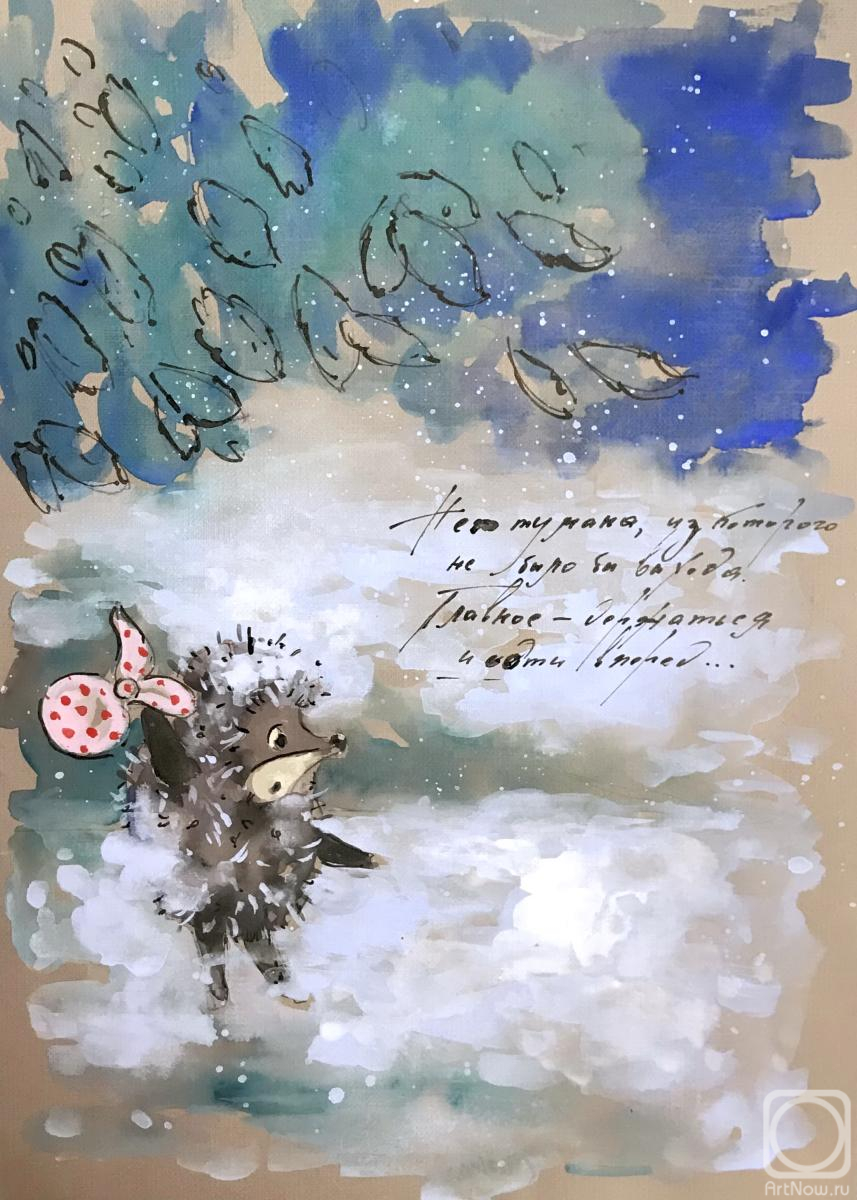 Нет тумана, из которого
не было бы выхода.
Главное – держаться
и идти вперед...
ArtNow.ru